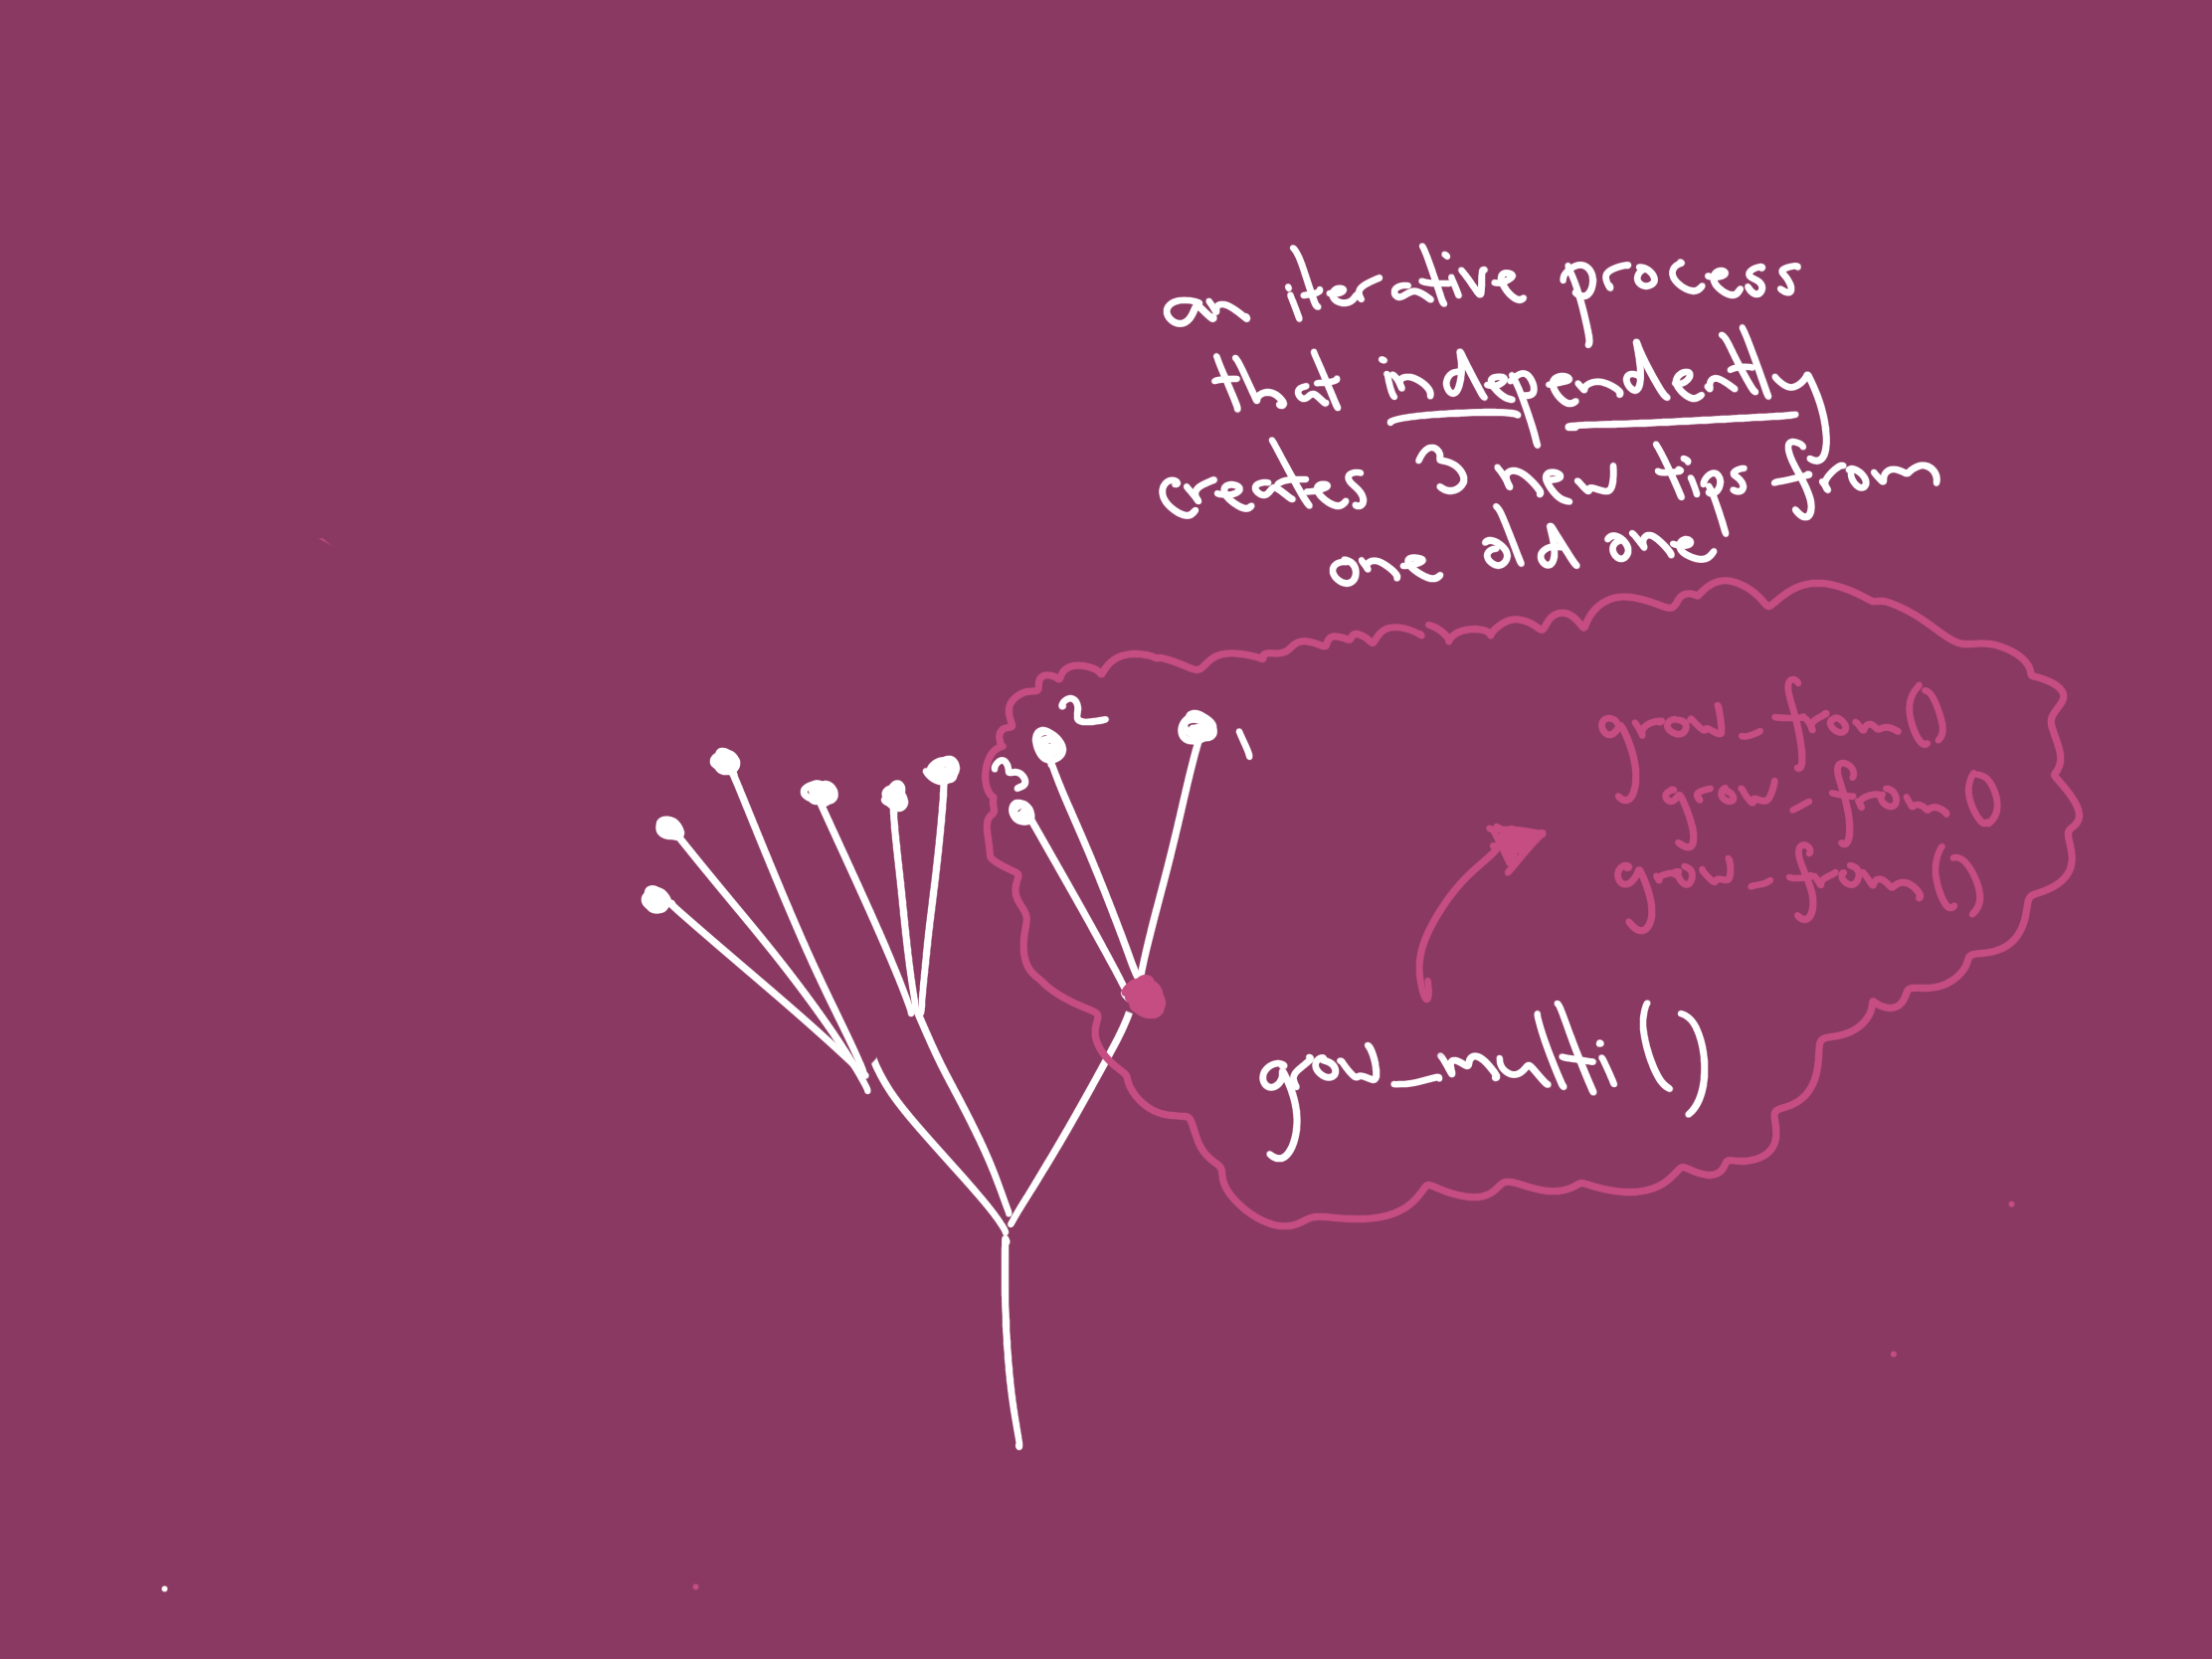 an iterative process
that independently
creates 3 new tips from
one old one
2
1
3
grow_from()
grow_from()
grow_from()
grow_multi()